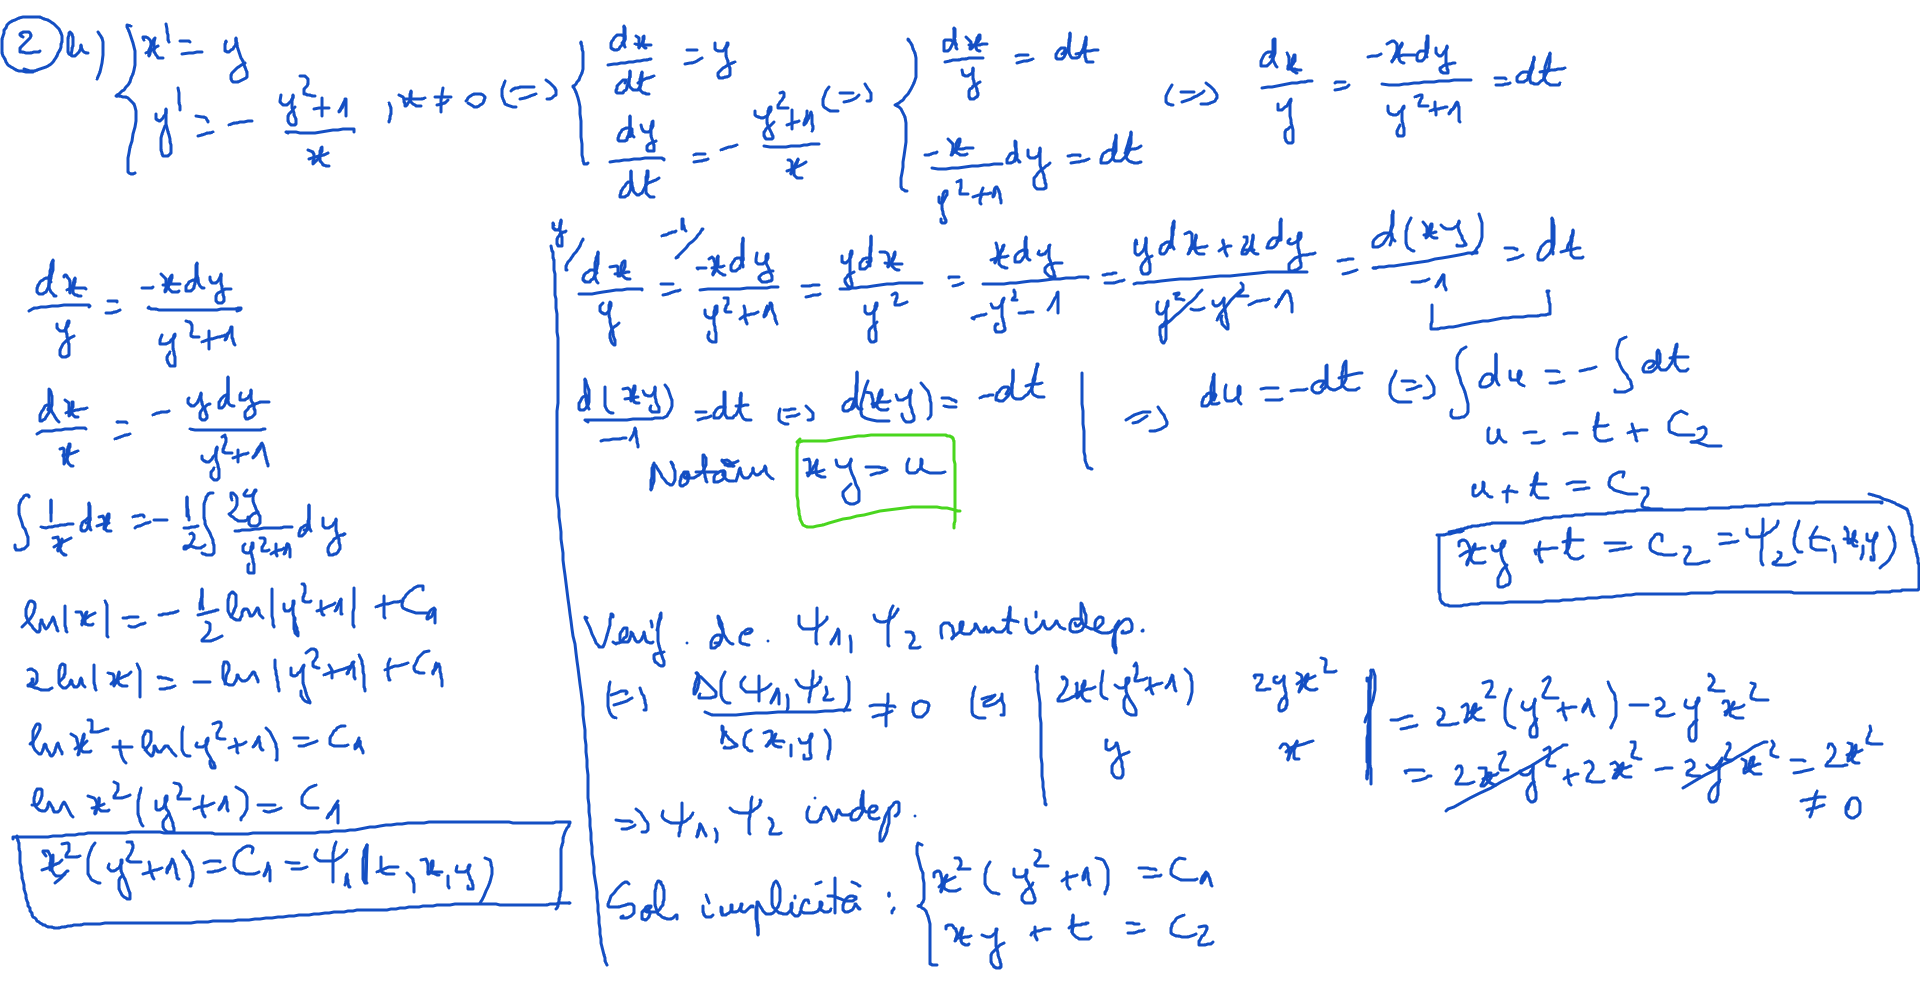 ② b) { x' = y ; y' = - (y²+1)/x , x ≠ 0 (=) { dx/dt = y ; dy/dt = - (y²+1)/x (=) { dx/y = dt ; -x/(y²+1) dy = dt (=) dx/y = -xdy/(y²+1) = dt
dx/y = -xdy/(y²+1)
dx/x = - ydy/(y²+1)
∫ 1/x dx = - 1/2 ∫ 2y/(y²+1) dy
ln|x| = - 1/2 ln|y²+1| + C₁
2ln|x| = - ln|y²+1| + C₁
ln x² + ln(y²+1) = C₁
ln x²(y²+1) = C₁
x²(y²+1) = C₁ = Ψ₁(t,x,y)
y/ dx/y = -1/ -xdy/(y²+1) = ydx/y² = xdy/(-y²-1) = (ydx + xdy)/(y²-y²-1) = d(xy)/-1 = dt
d(xy)/-1 = dt (=) d(xy) = -dt | => du = -dt (=) ∫du = - ∫dt
Notăm xy = u
u = -t + C₂
u + t = C₂
xy + t = C₂ = Ψ₂(t,x,y)
Verif. dc. Ψ₁, Ψ₂ sunt indep.
(=) D(Ψ₁,Ψ₂)/D(x,y) ≠ 0 (=) | 2x(y²+1) 2yx² ; y x | = 2x²(y²+1) - 2y²x²
= 2x²y² + 2x² - 2y²x² = 2x² ≠ 0
=> Ψ₁, Ψ₂ indep.
Sol. implicită : { x²(y²+1) = C₁ ; xy + t = C₂